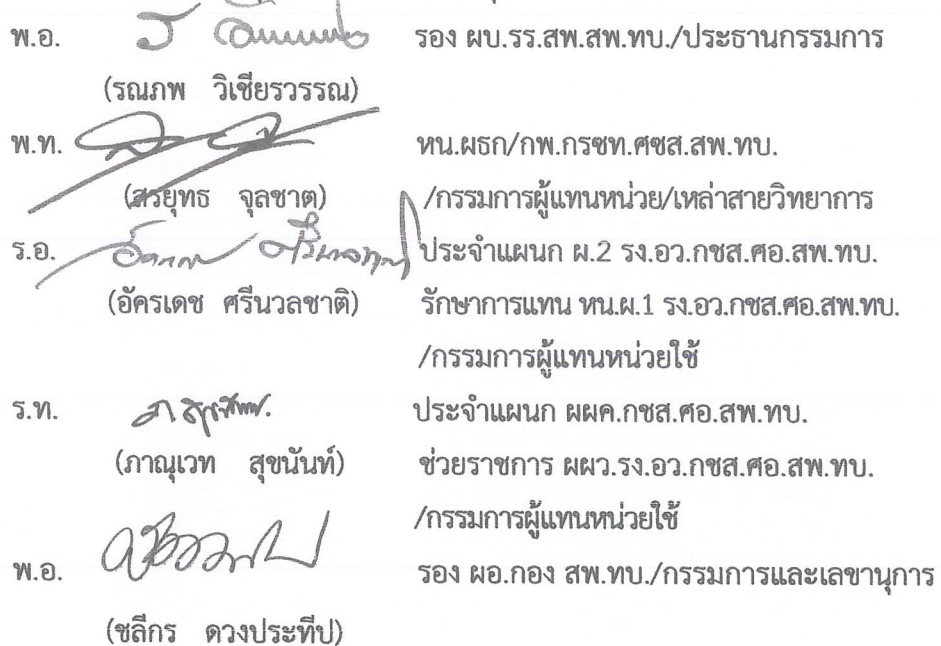 พ.อ. รอง ผบ.รร.สพ.สพ.ทบ./ประธานกรรมการ
(รณภพ วิเชียรวรรณ)
พ.ท. หน.ผธก/กพ.กรซท.ศซส.สพ.ทบ.
(สรยุทธ จุลชาต) /กรรมการผู้แทนหน่วย/เหล่าสายวิทยาการ
ร.อ. ประจำแผนก ผ.2 รง.อว.กชส.ศอ.สพ.ทบ.
(อัครเดช ศรีนวลชาติ) รักษาการแทน หน.ผ.1 รง.อว.กชส.ศอ.สพ.ทบ.
/กรรมการผู้แทนหน่วยใช้
ร.ท. ประจำแผนก ผผค.กชส.ศอ.สพ.ทบ.
(ภาณุเวท สุขนันท์) ช่วยราชการ ผผว.รง.อว.กชส.ศอ.สพ.ทบ.
/กรรมการผู้แทนหน่วยใช้
พ.อ. รอง ผอ.กอง สพ.ทบ./กรรมการและเลขานุการ
(ชลีกร ดวงประทีป)